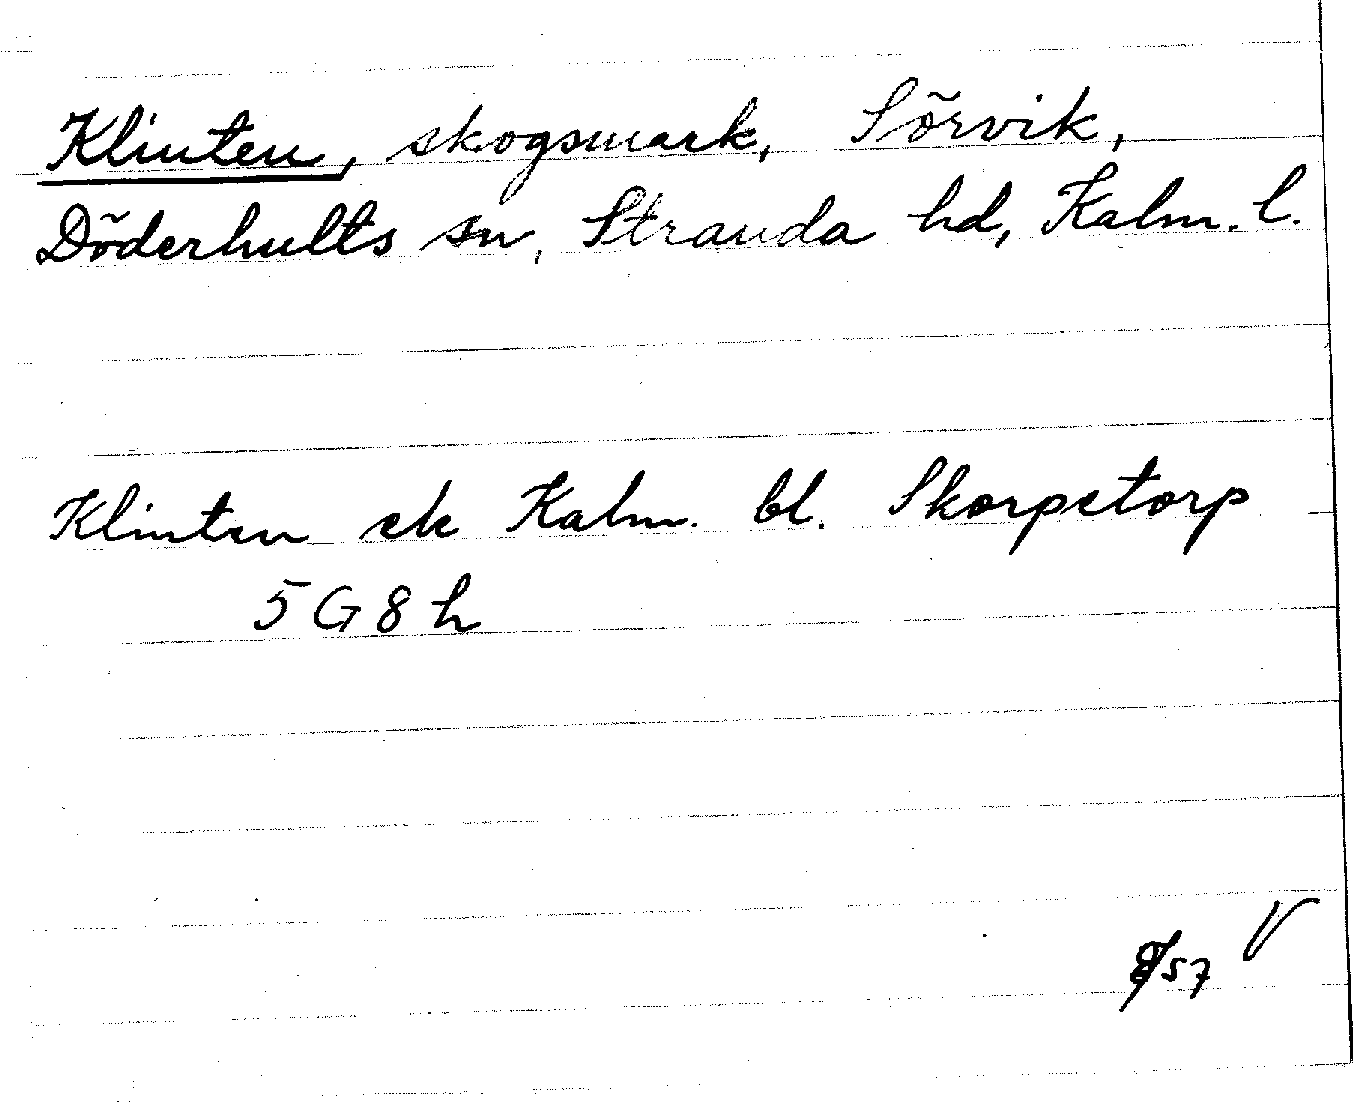 Klinten, skogsmark, Sörvik,
Döderhults sn, Stranda hd, Kalm. l.
Klinten ek Kalm. bl. Skorpetorp
5 G 8 h
57 V